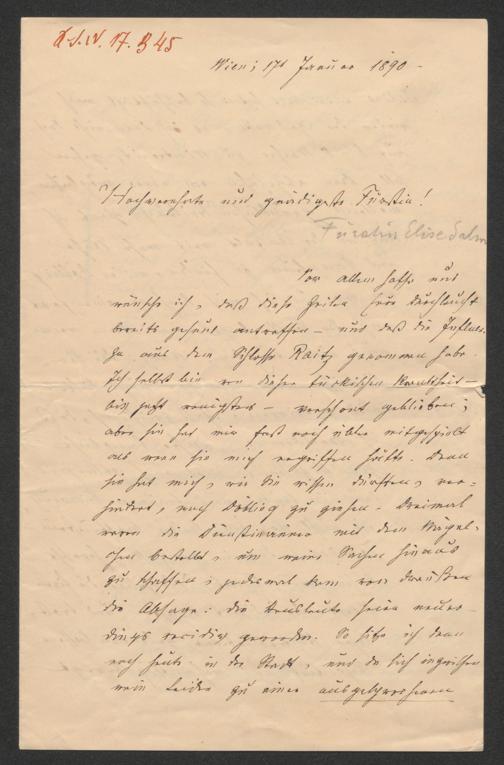 Z.S.N. 17. 345
Wien; 17t Januar 1890 –
Hochverehrte und gnädigste Fürstin!
Fürstin Elise Salm
Vor allem hoffe und
wünsche ich, daß diese Zeilen Eure Durchlaucht
bereits gesund antreffen – und daß die Influen-
za aus dem Schlosse Raitz genommen habe.
Ich selbst bin von dieser tückischen Krankheit –
bis jetzt wenigstens – verschont geblieben;
aber sie hat mir fast noch übler mitgespielt
als wenn sie mich ergriffen hätte. Denn
sie hat mich, wie Sie wissen dürften, ver-
hindert, nach Döbling zu ziehen. Dreimal
waren die Dienstmänner mit dem Wägel-
chen bestellt, um meine Sachen hinaus
zu schaffen; jedesmal kam von draußen
die Absage: die Hausleute seien neuer-
dings recidiv geworden. So sitze ich denn
noch heute in der Stadt, und da sich inzwischen
mein Leiden zu einem ausgesprochenen